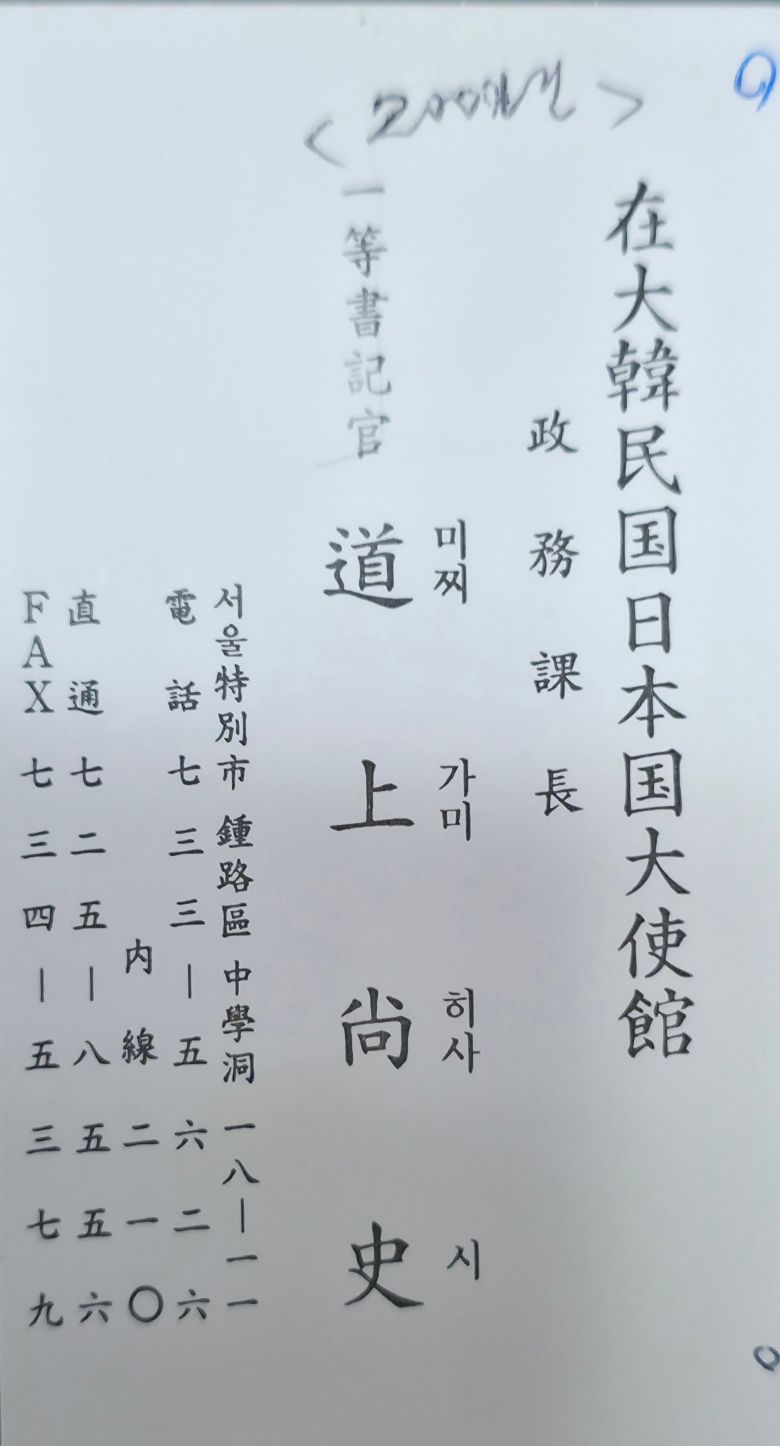 在大韓民国日本国大使館
政務課長
미찌 가미 히사 시
一等書記官
道上尚史
서울特別市 鍾路區 中學洞 一八―一一
電話 七三三―五六二六
内線 二一〇
直通 七二五―八五五六
FAX 七三四―五三七九